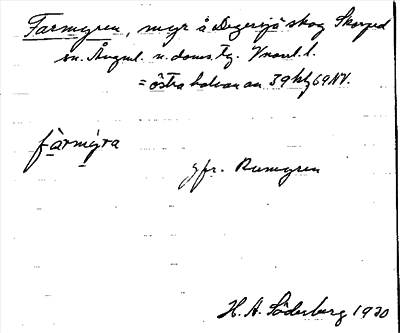 Farmyren, myr å Degersjö skog Skorped
sn. Ångml. n. doms. tg. Vnorrl. l.
= östra halvan av 39 kbl 69 NV.
färmýra
jfr. Rumyren
H. A. Söderberg 1930